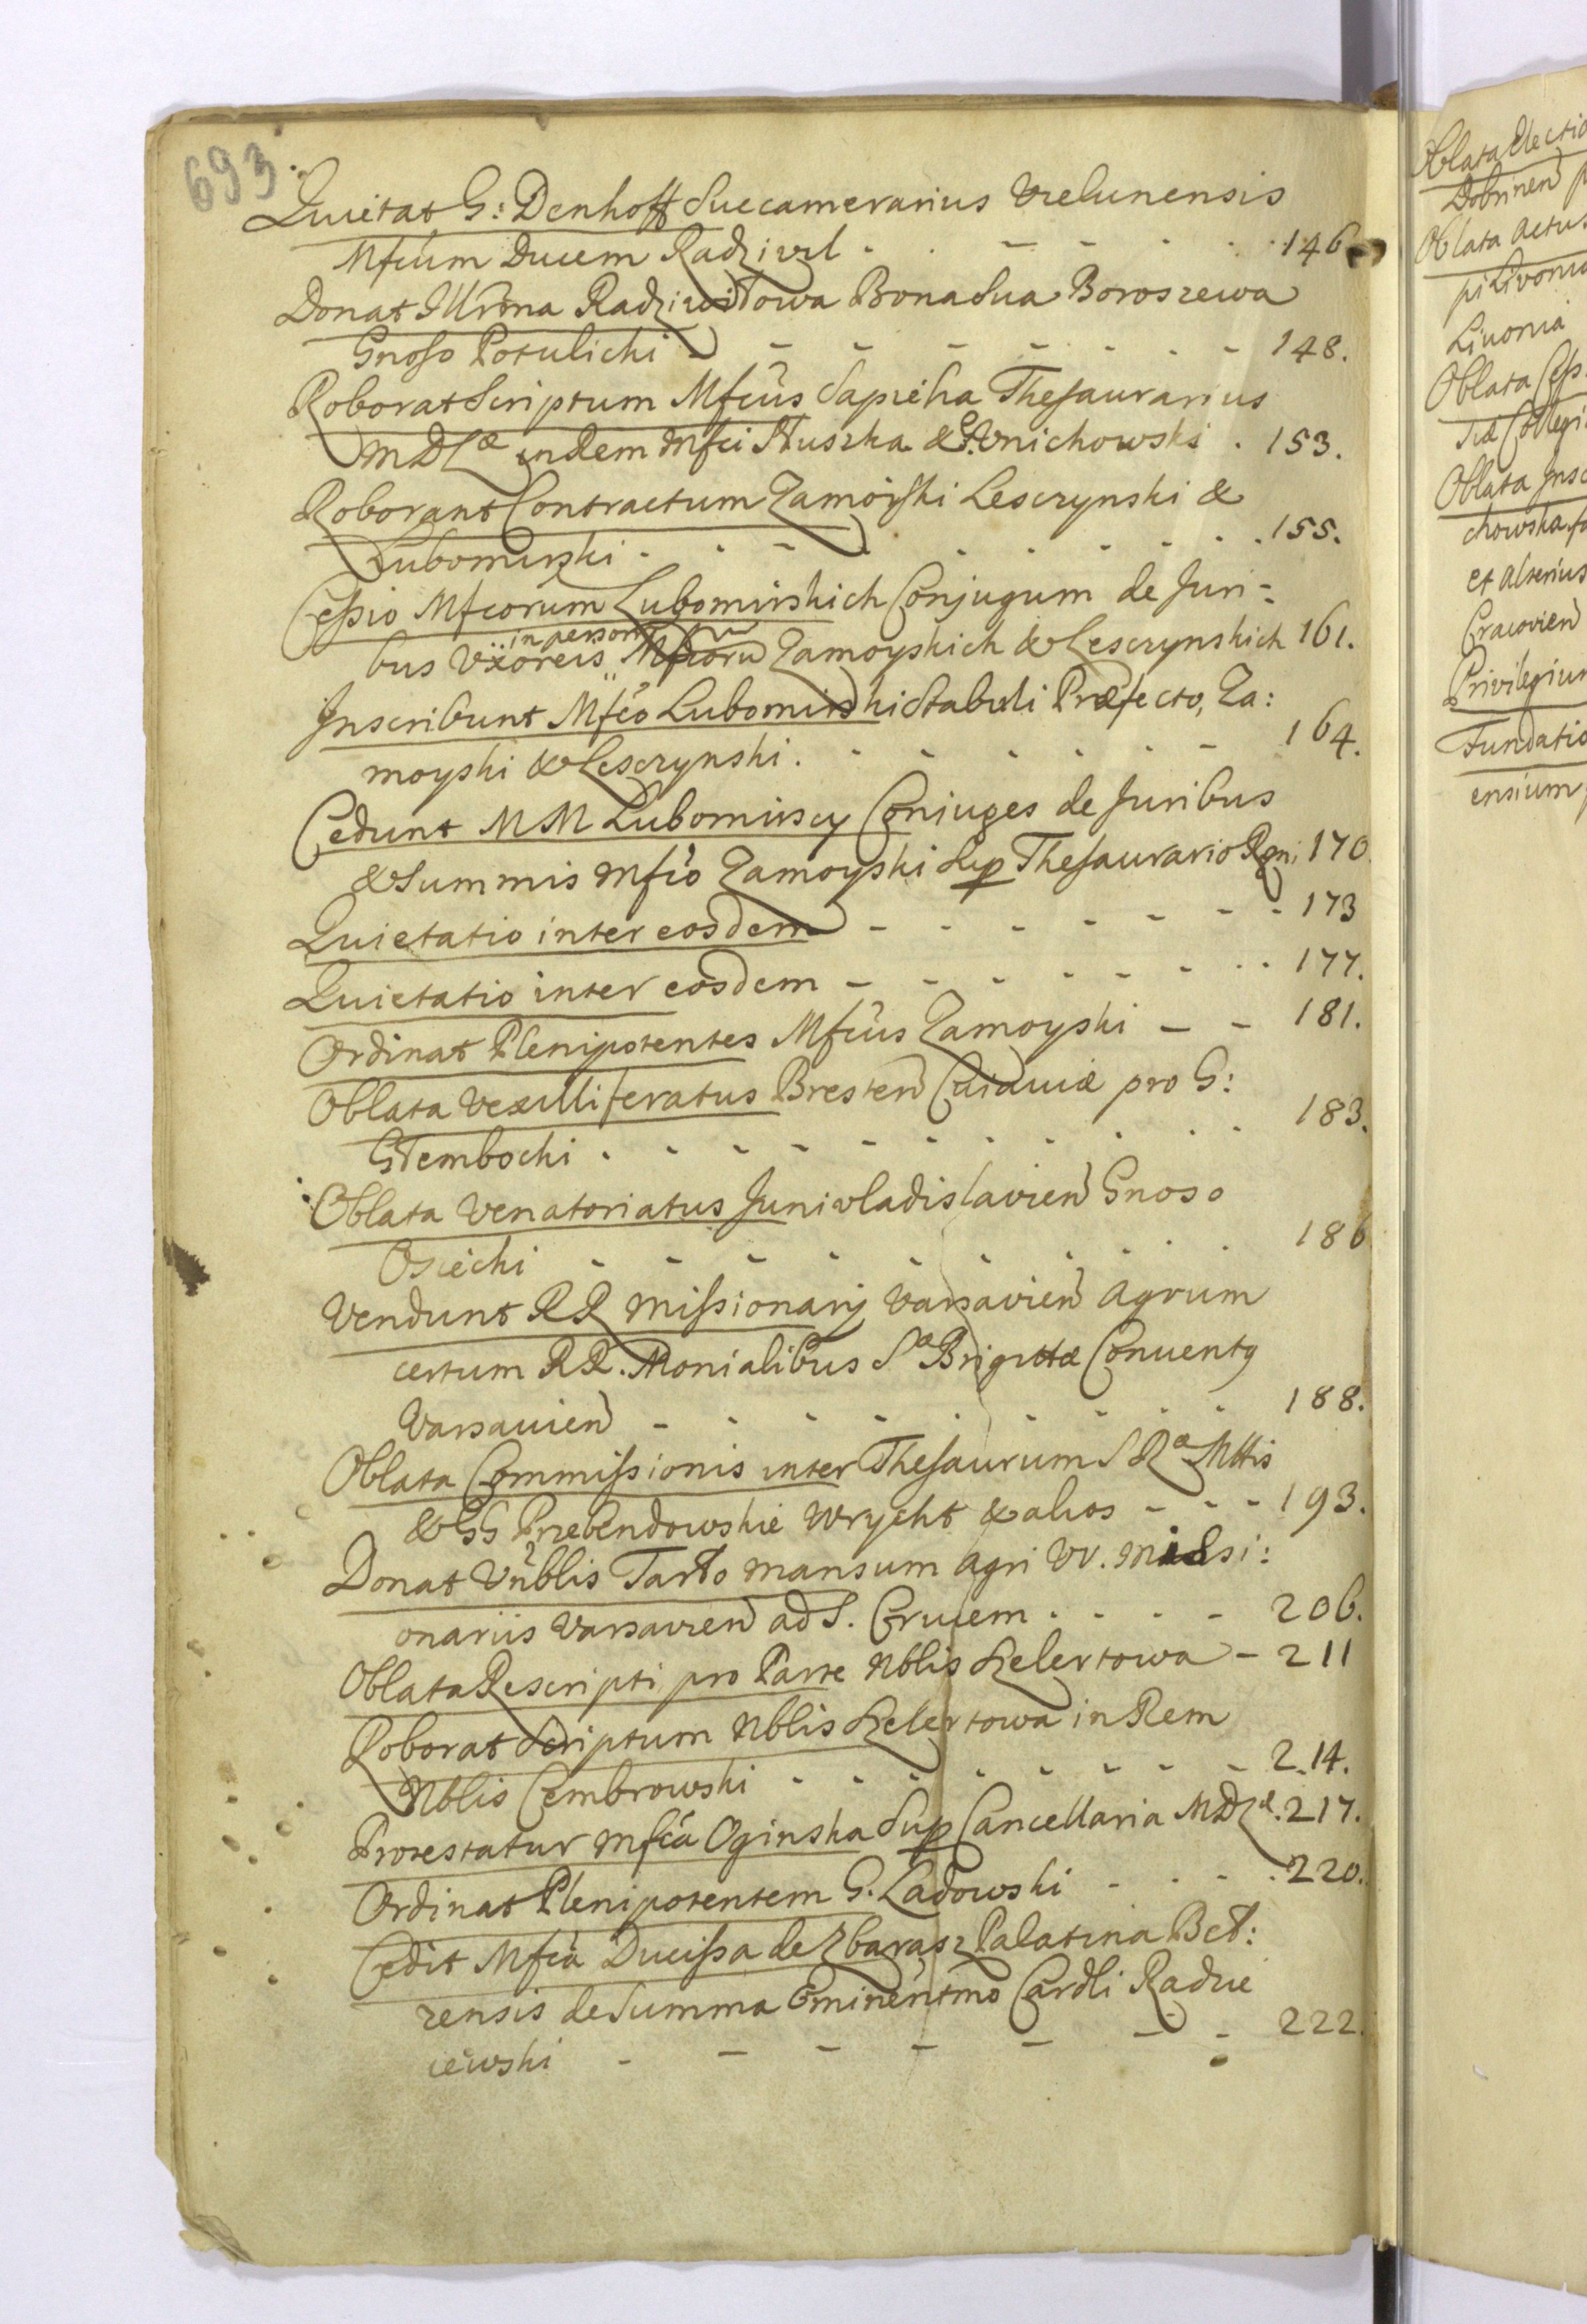 693
Quietat G: Denhoff Succamerarius Vielunensis
Mfcum Ducem Radziwil - - - - 146
Donat Illrma Radziwiłowa Bona Sua Boroszewa
Gnoso Potulicki - - - - - - - 148.
Roborat Scriptum Mfcus Sapieha Thesaurarius
MDLæ in Rem Mfci Słuszka & G. Unichowski . 153.
Roborant Contractum Zamoyski Lesczynski &
Lubomirski - - - - - - - 155.
Cessio Mfcorum Lubomirskich Conjugum de Juri=
in person
bus Uxoreis Mfcoru Zamoyskich & Lesczynskich 161.
Inscribunt Mfco Lubomirski Stabuli Præfecto, Za:
moyski & Lesczynski . - - - - - - 164.
Cedunt MM Lubomirscy Coniuges de Juribus
& Summis Mfco Zamoyski Sup Thesaurario Rgni 170.
Quietatio inter eosdem - - - - - - - 173
Quietatio inter eosdem - - - - - - - 177.
Ordinat Plenipotentes Mfcus Zamoyski - - 181.
Oblata Vexilliferatus Bresten Cuiaviæ pro G:
Głembocki . - - - - - - - - 183.
Oblata Venatoriatus Junivladislavien Gnoso
Osiecki - - - - - - - - - 186
Vendunt RR Missionarij Varsavien Agrum
certum RR. Monialibus Sæ Brigittæ Conventq
Varsavien - - - - - - - - 188.
Oblata Commissionis inter Thesaurum S Ræ Mttis
& GG Przebendowskie Wrycht & alios - - - 193.
Donat Vnblis Tarło mansum agri VV. Missi:
onariis Varsavien ad S. Crucem . - - - 206.
Oblata Rescripti pro Parte Nblis Kelertowa - 211
Roborat Scriptum Nblis Kelertowa in Rem
Nblis Cembrowski - - - - - - - 214.
Protestatur Mfca Oginska Sup Cancellaria MDLæ. 217.
Ordinat Plenipotentem G. Ladowski - - - . 220.
Cedit Mfca Ducissa de Zbarasz Palatina Beł:
zensis de Summa Eminentmo Cardli Radzie
iewski - - - - - - - 222.
Oblata Electio
Dobrinen p
Oblata Actus
pi Livonia
Livonia
Oblata Cess
Oblata Insc
chowska
et alterius
Cracovien
Privilegium
Fundatio
ensium